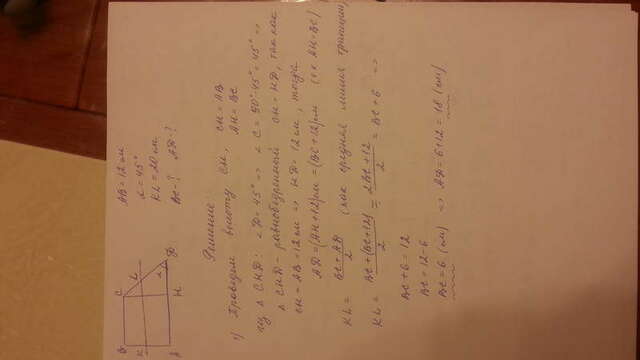 B C
AB = 12 см
K L
α = 45°
KL = 20 см
α
A H D
BC - ? AD - ?
Решение:
1) Проведем высоту CH, CH = AB
AH = BC
из Δ CHD: ∠D = 45° => ∠C = 90° - 45° = 45° =>
Δ CHD - равнобедренный CH = HD, так как
CH = AB = 12 см => HD = 12 см, тогда
AD = (AH + 12) см = (BC + 12) см (т.к. AH = BC)
KL = (BC + AD)/2 (как средняя линия трапеции)
KL = (BC + (BC + 12))/2 = (2BC + 12)/2 = BC + 6 =>
BC + 6 = 12
BC = 12 - 6
BC = 6 (см) => AD = 6 + 12 = 18 (см)